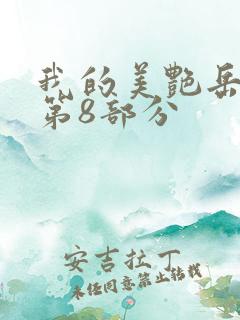 我的美艷岳
第8部分
安吉拉丁
未经同意禁止转载